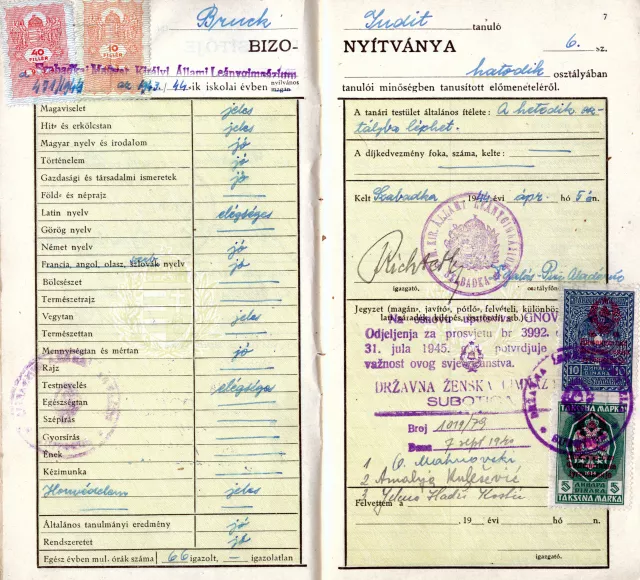 40
FILLÉR
10
FILLÉR
Bruck
BIZO-
a Szabadkai Magyar Királyi Állami Leánygimnázium
az 1943/44-ik iskolai évben nyilvános
magán
Magaviselet jeles
Hit- és erkölcstan jeles
Magyar nyelv és irodalom jó
Történelem jó
Gazdasági és társadalmi ismeretek jó
Föld- és néprajz —
Latin nyelv elégséges
Görög nyelv —
Német nyelv jó
Francia, angol, olasz, szlovák nyelv szerb jó
Bölcsészet —
Természetrajz —
Vegytan jeles
Természettan —
Mennyiségtan és mértan jó
Rajz —
Testnevelés elégséges
Egészségtan —
Szépírás —
Gyorsírás —
Ének —
Kézimunka —
Honvédelem jeles
Általános tanulmányi eredmény jó
Rendszeretet jó
Egész évben mul. órák száma 66 igazolt, — igazolatlan
7
Judit tanuló
NYÍTVÁNYA 6. sz.
hatodik osztályában
tanulói minőségben tanusított előmeneteléről.
A tanári testület általános ítélete: A hetedik osz-
tályba léphet.
A díjkedvezmény foka, száma, kelte: —
Kelt Szabadka, 1944 évi ápr. hó 5 én.
igazgató.
Jegyzet (magán-, javító-, pótló-, felvételi, különbö-
Odjeljenja za prosvjetu br 3992. o
31. jula 1945. potvrdjuje
važnost ovog svjedočanstva.
DRŽAVNA ŽENSKA GIMNAZ
SUBOTICA
Broj 1019/79
1
2 Amalya
3
Felvettem a
, 19 évi hó -n.
igazgató.
10
5 DINARA 5
TAKSENA MARKA